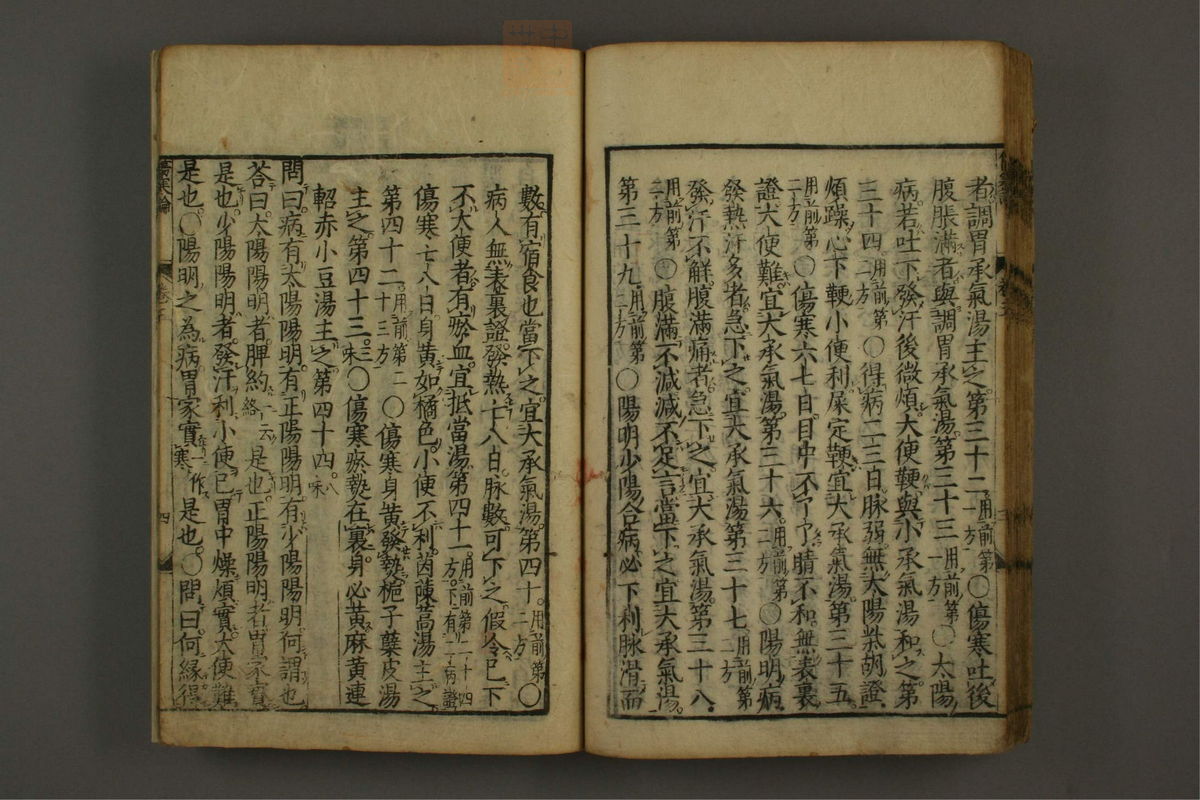 者調胃承氣湯主之第三十二用前第一方○傷寒吐後
腹脹滿者與調胃承氣湯第三十三用前第一方○太陽
病若吐下發汗後微煩大便鞕與小承氣湯和之第
三十四用前第二方○得病二三日脉弱無太陽柴胡證
煩躁心下鞕小便利屎定鞕宜大承氣湯第三十五
用前第二方○傷寒六七日目中不了了睛不和無表裏
證大便難宜大承氣湯第三十六用前第二方○陽明病
發熱汗多者急下之宜大承氣湯第三十七用前第二方
發汗不解腹滿痛者急下之宜大承氣湯第三十八
用前第二方○腹滿不減減不足言當下之宜大承氣湯
第三十九用前第二方○陽明少陽合病必下利脉滑而
數有宿食也當下之宜大承氣湯第四十用前第二方○
病人無表裏證發熱七八日脉數可下之假令已下
不大便者有瘀血宜抵當湯第四十一用前第二十四方下有二病證
傷寒七八日身黃如橘色小便不利茵蔯蒿湯主之
第四十二用前第二十三方○傷寒身黃發熱梔子蘗皮湯
主之第四十三三味○傷寒瘀熱在裏身必黃麻黃連
軺赤小豆湯主之第四十四八味
問曰病有太陽陽明有正陽陽明有少陽陽明何謂也
答曰太陽陽明者脾約一云絡是也正陽陽明者胃家實
是也少陽陽明者發汗利小便已胃中燥煩實大便難
是也○陽明之為病胃家實一作寒是也○問曰何緣得
傷寒論
四